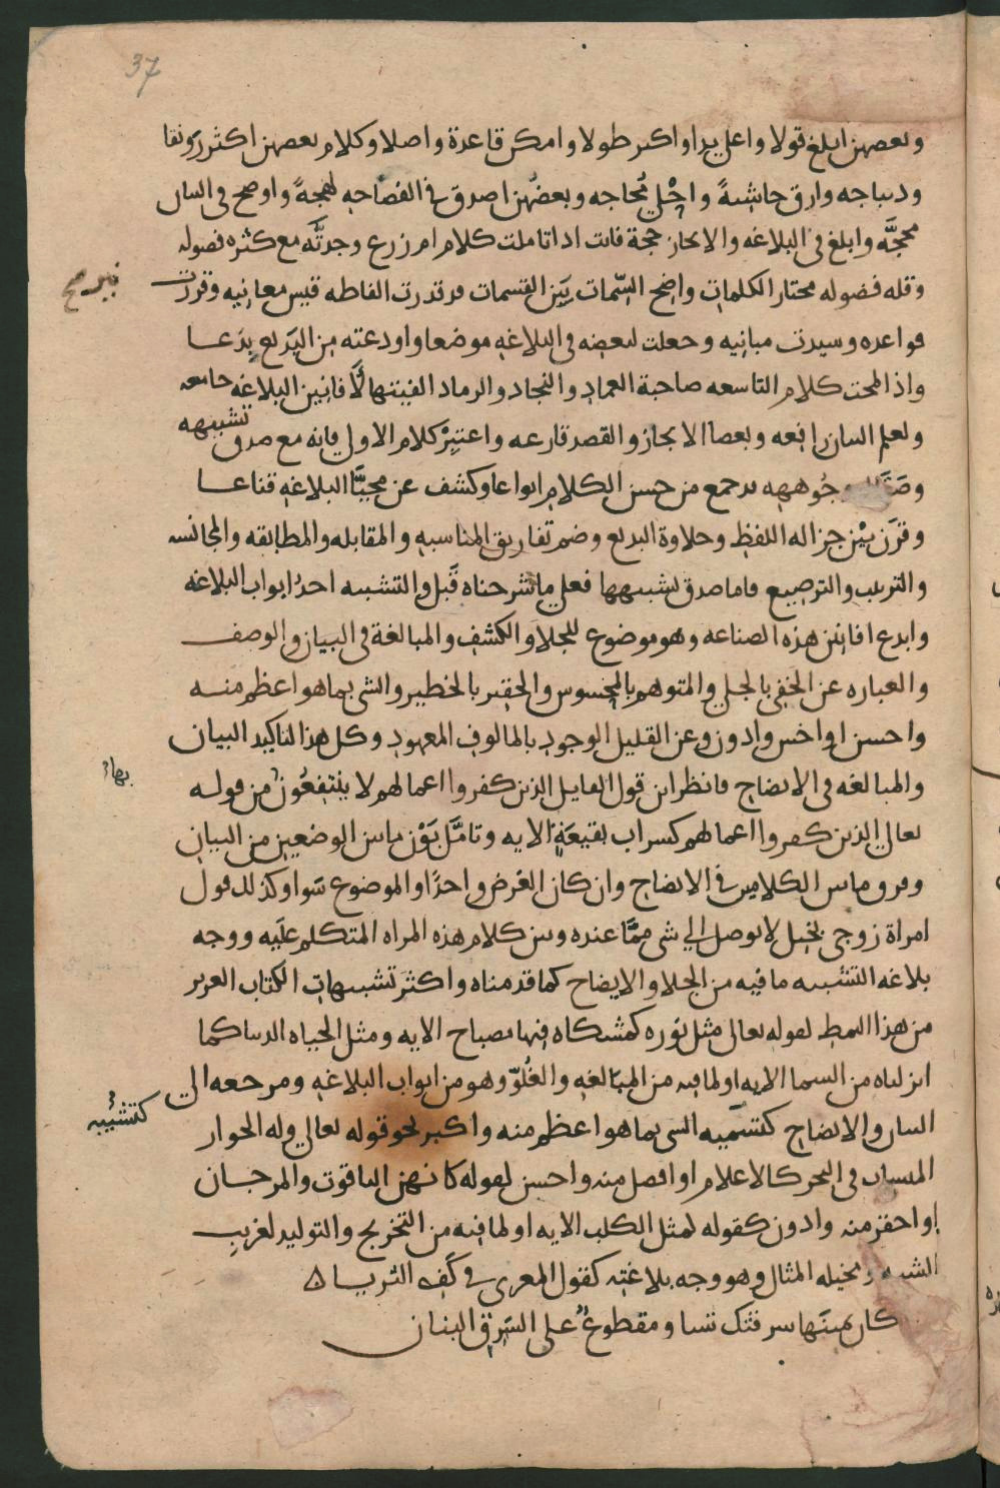 37
وبعضهن ابلغ قولا واعلى يدا واكثر طولا وامكن قاعدة واصلا وكلام بعضهن اكثر رونقا
وديباجه وارق حاشيةً واجلى مُجاجه وبعضهن اصدق في الفصاحه لهجةً واوضح في البيان
محجَّه وابلغ في البلاغه والايجاز حجة فانت اذا تاملت كلام ام زرع وجدتَّه مع كثره فصوله
وقله فضوله مختار الكلمات واضح السّمات نير القسمات قد قدرت الفاظه قيس معانيه وقررت
نير صح
قواعده وشيدت مبانيه وجعلت لبعضه في البلاغه موضعا واودعته من البديع بِدَعا
واذا لمحت كلام التاسعه صاحبة العماد والنجاد والرماد الفيتها لأفانين البلاغه جامعه
ولعلم البيان رافعه وبعصا الايجاز والقصد قارعه واعتبِرْ كلام الاول فانه مع صدق تشبيهه
وصَقَاله وجُوهه قد جمع من حسن الكلام انواعا وكشف عن محيَّا البلاغه قناعا
وقرَن بيْن جزاله اللفظ وحلاوة البديع وضم تفاريق المناسبه والمقابله والمطابقه والمجانسه
والترتيب والترصيع فاما صدق تشبيهها فعلى ما شرحناه قبل والتشبيه احدُ ابواب البلاغه
وابدع افانين هذه الصناعه وهو موضوع للجلا والكشف والمبالغة في البيان والوصف
والعباره عن الخفى بالجلي والمتوهم بالمحسوس والحقير بالخطير والشى بما هو اعظم منه
واحسن او اخس وادون وعن القليل الوجود بالمالوف المعهود وكل هذا لتاكيد البيان
والمبالغه في الايضاح فانظر اين قول القايل الذين كفروا اعمالهم لا ينتفعُون من قوله
بها
تعالى الذين كفروا اعمالهم كسراب بقيعَةٍ الايه وتامَّل بَوْن ما بين الوضعين من البيان
وفرق ما بين الكلامين في الايضاح وان كان الغرض واحدًا والموضوع سَوا وكذلك قول
امراة زوجى بخيل لا يوصل الى شى ممَّا عنده وبين كلام هذه المراه المتكلم عليه ووجه
بلاغه التشبيه ما فيه من الجلا والايضاح كما قدمناه واكثر تشبيهات الكتاب العزيز
من هذا النمط لقوله تعالى مثل نوره كمشكاه فيها مصباح الايه ومثل الحياه الدنيا كما
انزلناه من السما الايه او لما فيه من المبالغه والغُلوّ وهو من ابواب البلاغه ومرجعه الى
البيان والايضاح كتسميه الشى بما هو اعظم منه واكبر نحو قوله تعالى وله الجوار
كتشبيه
المنشات في البحر كالاعلام او افضل منه واحسن لقوله كانهن الياقوت والمرجان
او احقر منه وادون كقوله كمثل الكلب الايه او لما فيه من التخريج والتوليد لغريب
الشبه وتخيله المثال وهو وجه بلاغته كقول المعرى في كف الثريا ه
كان يمينها سرقتك شيا ومقطوعٌ على السَرِق البنان